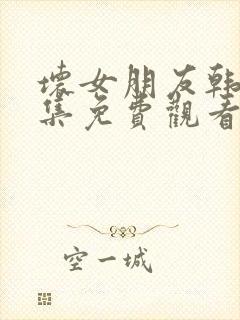 壞女朋友韩
集免費觀看
空一城